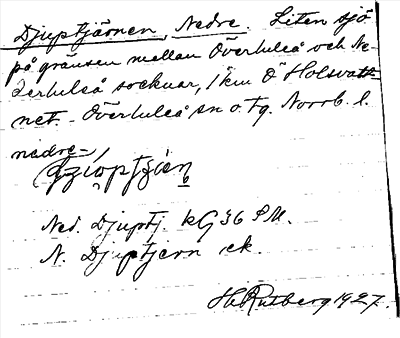 Djuptjärnen, Nedre. Liten sjö
på gränsen mellan Överluleå och Ne-
derluleå socknar, 1 km Ö Holsvatt-
net. - Överluleå sn o. tg. Norrb. l.
nedre-
Ned. Djuptj. kG 36 SM.
N. Djuptjern ek.
H. Rutberg 1927.